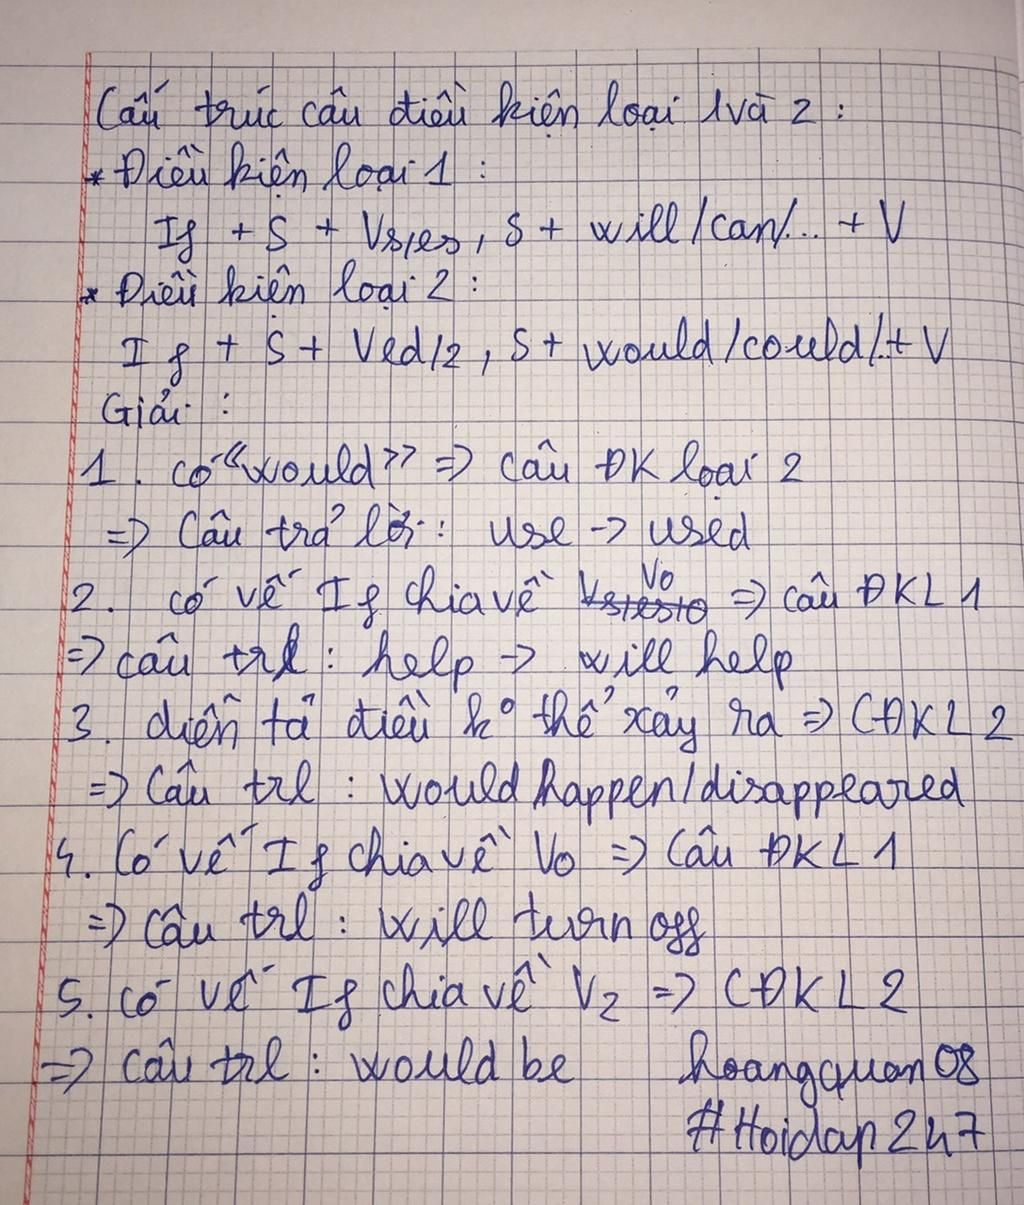 Cấu trúc câu điều kiện loại 1 và 2 :
* Điều kiện loại 1 :
If + S + Vs/es, S + will/can/... + V
* Điều kiện loại 2 :
If + S + Ved/2, S + would/could/.+ V
Giải :
1. có "would" => câu ĐK loại 2
=> Câu trả lời : use -> used
2. có vế If chia về V0 => câu ĐKL 1
=> câu trl : help -> will help
3. diễn tả điều k° thể xảy ra => CĐKL 2
=> Câu trl : would happen/disappeared
4. Có vế If chia về V0 => Câu ĐKL 1
=> câu trl : will turn off
5. có vế If chia về V2 => CĐKL 2
=> câu trl : would be hoangquan08
#Hoidap247